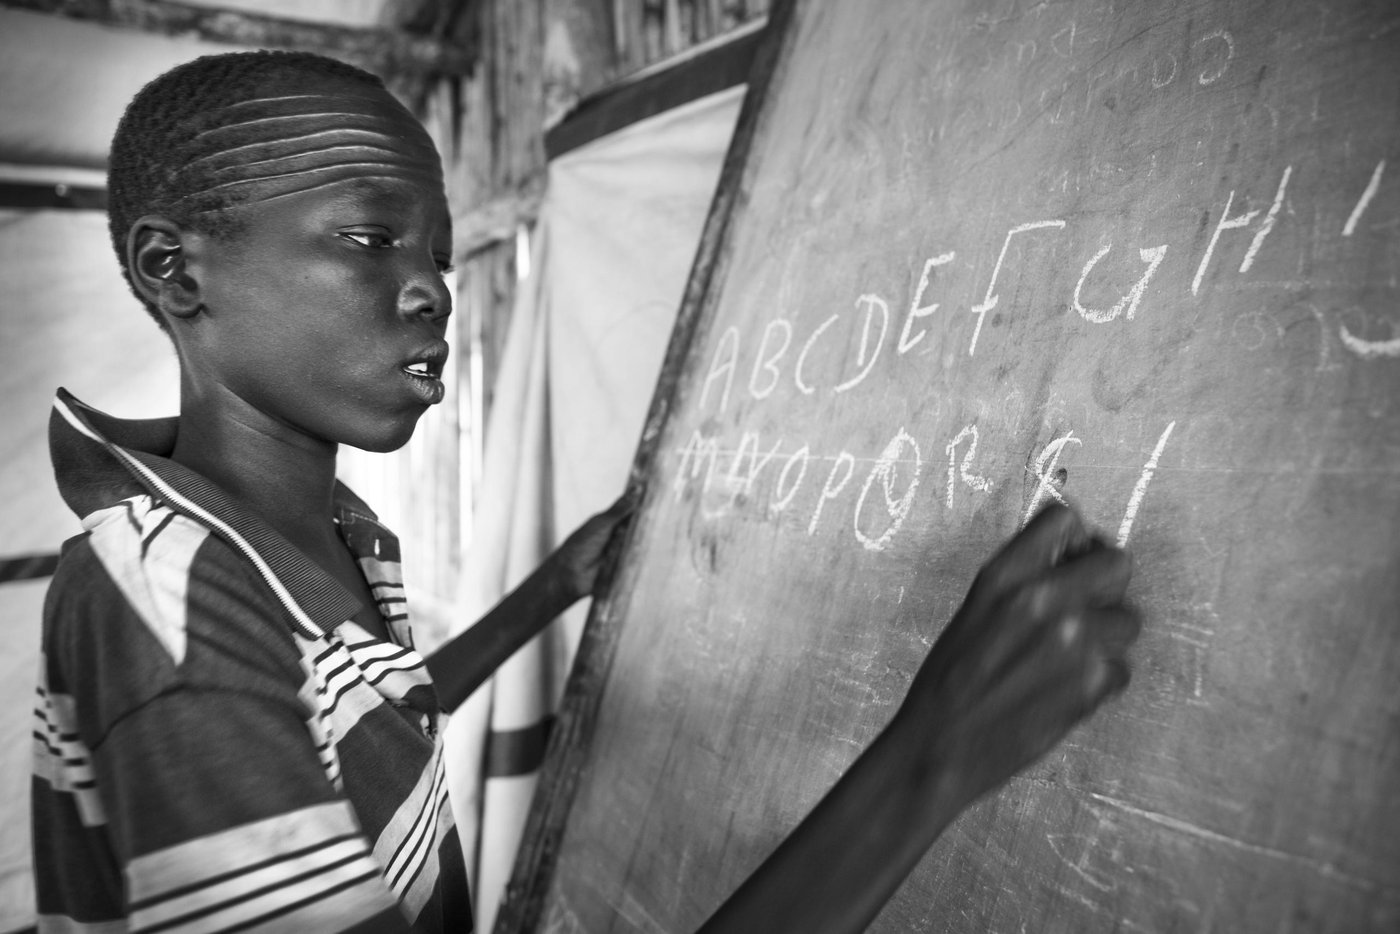 A B C D E F G H I
M N O P Q R